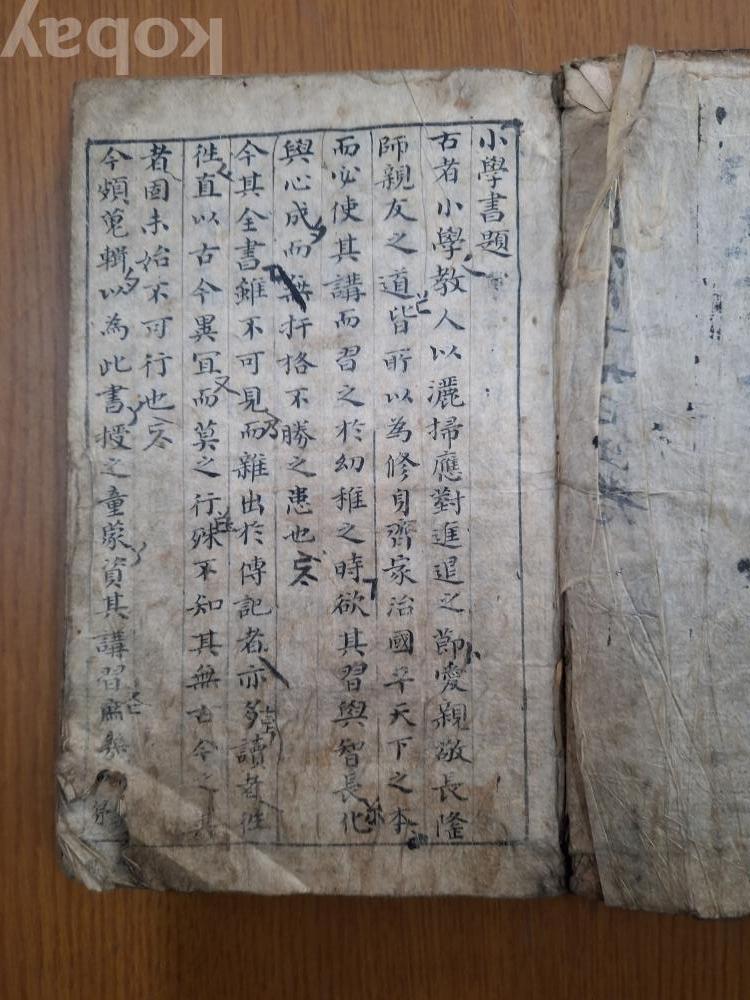 kobay
小學書題
古者小學敎人以灑掃應對進退之節愛親敬長隆
師親友之道皆所以為修身齊家治國平天下之本
而必使其講而習之於幼稚之時欲其習與智長化
與心成而無扞格不勝之患也
今其全書雖不可見而雜出於傳記者亦多讀者徃
徃直以古今異冝而莫之行殊不知其無古今之異
者固未始不可行也
今頗蒐輯以為此書授之童蒙資其講習庶㡬